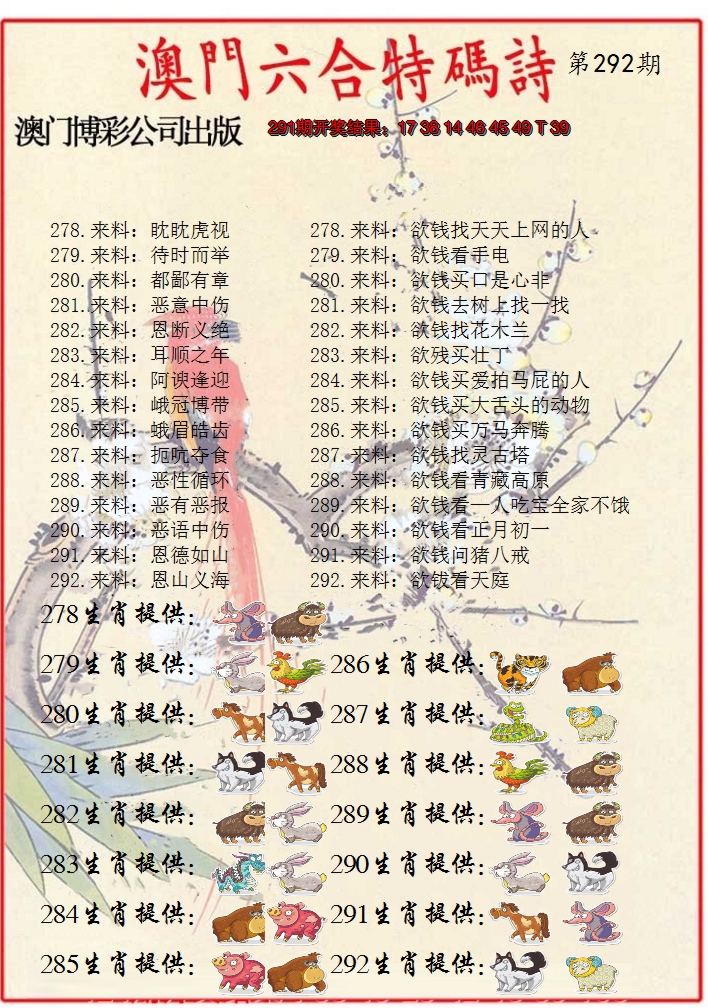 澳門六合特碼詩 第292期
澳门博彩公司出版 291期开奖结果：17 36 14 46 45 49 T 39
278.来料：眈眈虎视 278.来料：欲钱找天天上网的人
279.来料：待时而举 279.来料：欲钱看手电
280.来料：都鄙有章 280.来料：欲钱买口是心非
281.来料：恶意中伤 281.来料：欲钱去树上找一找
282.来料：恩断义绝 282.来料：欲钱找花木兰
283.来料：耳顺之年 283.来料：欲残买壮丁
284.来料：阿谀逢迎 284.来料：欲钱买爱拍马屁的人
285.来料：峨冠博带 285.来料：欲钱买大舌头的动物
286.来料：蛾眉皓齿 286.来料：欲钱买万马奔腾
287.来料：扼吭夺食 287.来料：欲钱找灵古塔
288.来料：恶性循环 288.来料：欲钱看青藏高原
289.来料：恶有恶报 289.来料：欲钱看一人吃宝全家不饿
290.来料：恶语中伤 290.来料：欲钱看正月初一
291.来料：恩德如山 291.来料：欲钱问猪八戒
292.来料：恩山义海 292.来料：欲钹看天庭
278生肖提供：
279生肖提供： 286生肖提供：
280生肖提供： 287生肖提供：
281生肖提供： 288生肖提供：
282生肖提供： 289生肖提供：
283生肖提供： 290生肖提供：
284生肖提供： 291生肖提供：
285生肖提供： 292生肖提供：